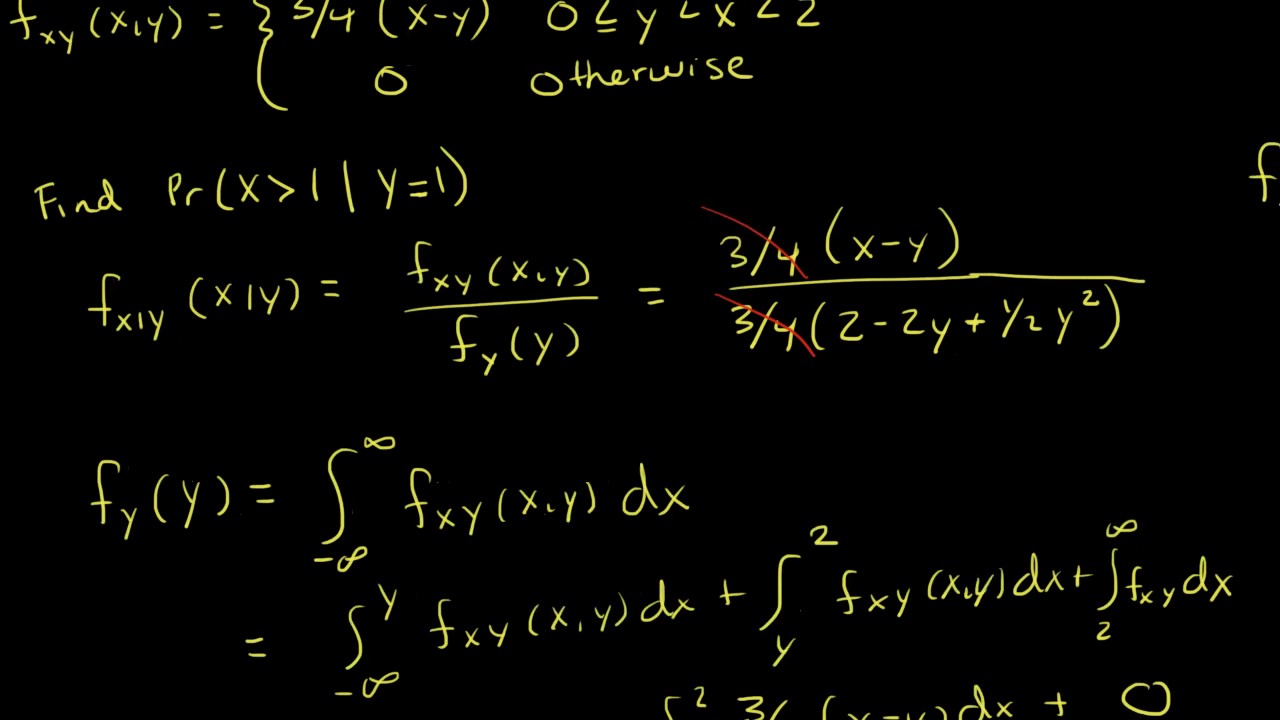 f_xy (x,y) = { 3/4 (x-y)   0 ≤ y < x < 2
0   otherwise
Find Pr(X>1 | Y=1)
f
f_x|y (x|y) = f_xy (x,y) / f_y (y) = 3/4 (x-y) / 3/4 (2 - 2y + 1/2 y²)
f_y (y) = ∫_-∞^∞ f_xy (x,y) dx
= ∫_-∞^y f_xy (x,y) dx + ∫_y^2 f_xy (x,y) dx + ∫_2^∞ f_xy dx
∫^2 3/4 (x-y) dx + 0